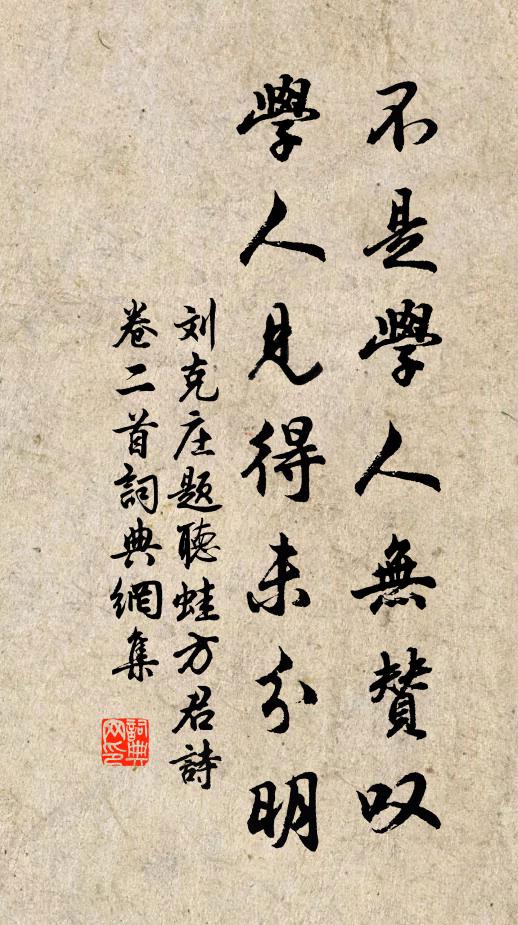 不是學人無贊叹
學人見得未分明
刘克庄題聽蛙方君詩
卷二首詞典網集
詞典网印